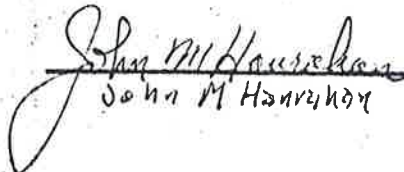 John M Hanrahan
John M Hanrahan